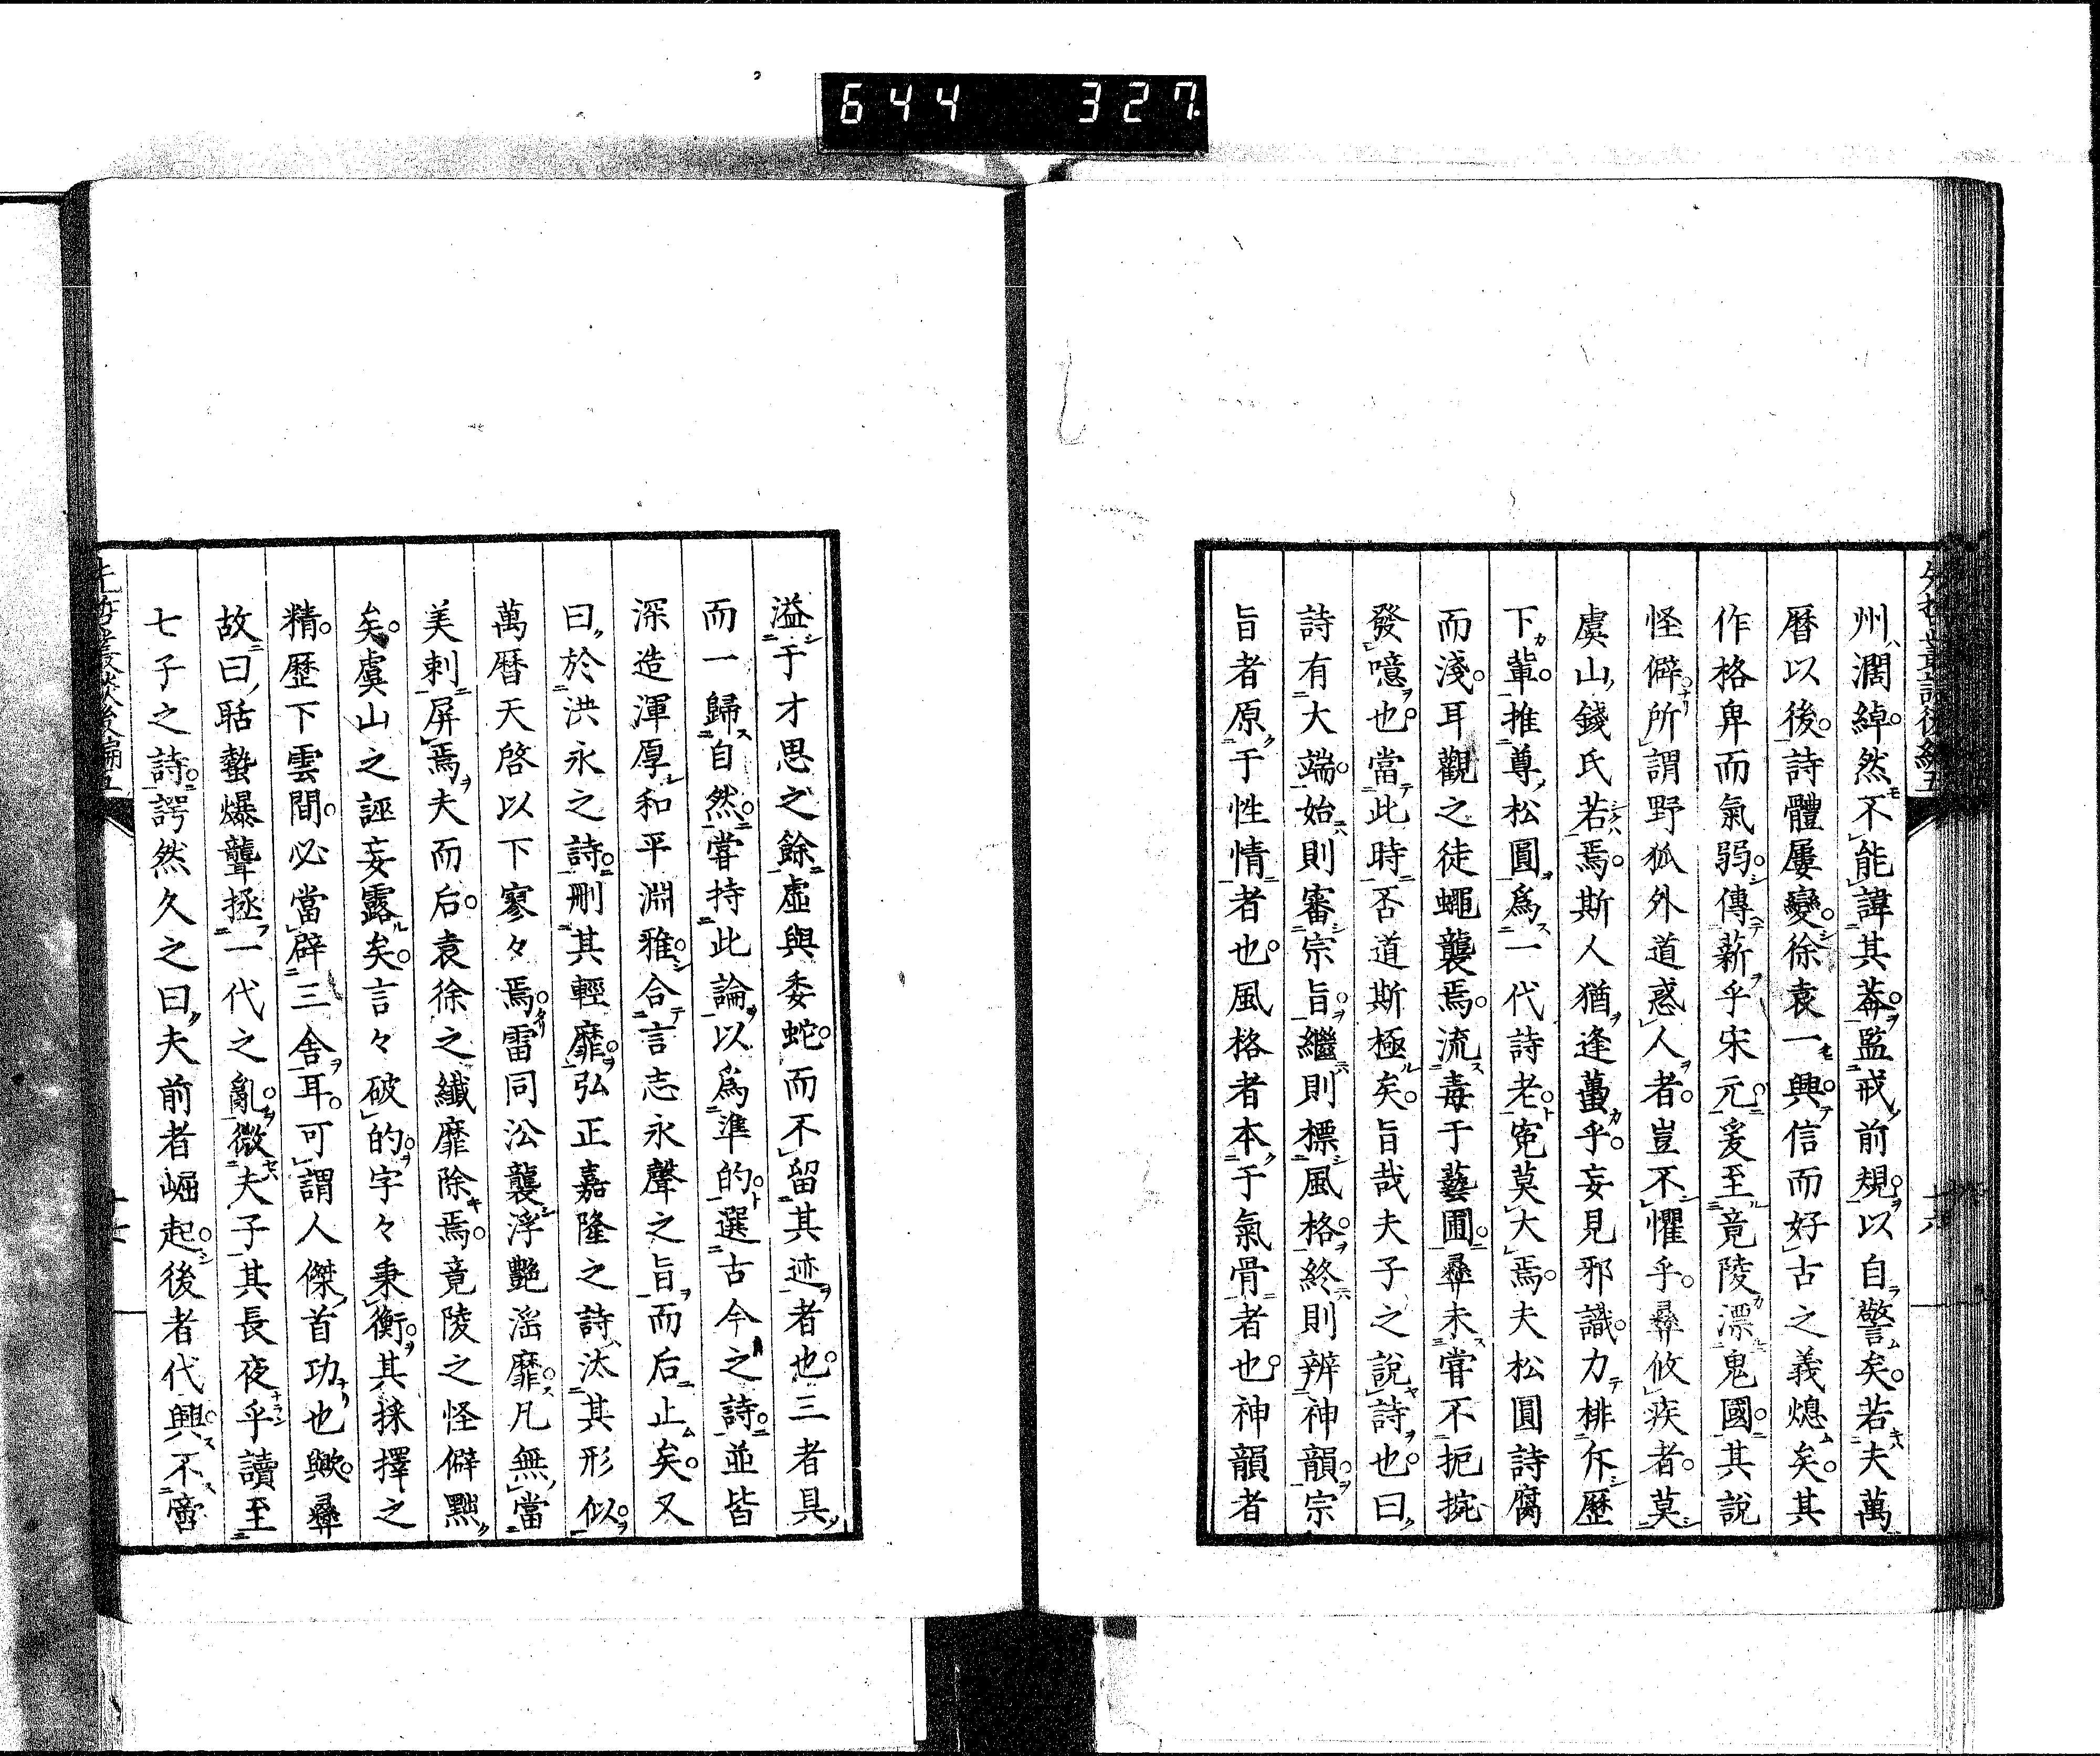 644 327
先哲叢談後編五
十六
州濶綽然不能諱其莽監戒前規以自警矣若夫萬
曆以後詩體屢變徐袁一興信而好古之義熄矣其
作格卑而氣弱傳薪乎宋元爰至竟陵漂鬼國其說
怪僻所謂野狐外道惑人者豈不懼乎彝攸疾者莫
虞山錢氏若焉斯人猶逢蠆乎妄見邪識力排斥歷
下輩推尊松圓爲一代詩老寃莫大焉夫松圓詩腐
而淺耳觀之徒蠅襲焉流毒于藝圃彝未嘗不扼捥
發噫也當此時否道斯極矣旨哉夫子之說詩也曰
詩有大端始則審宗旨繼則標風格終則辨神韻宗
旨者原于性情者也風格者本于氣骨者也神韻者
溢于才思之餘虛與委蛇而不留其迹者也三者具
而一歸自然嘗持此論以爲準的選古今之詩並皆
深造渾厚和平淵雅合言志永聲之旨而后止矣又
曰於洪永之詩刪其輕靡弘正嘉隆之詩汰其形似
萬曆天啓以下寥々焉雷同沿襲浮艷滛靡凡無當
美刺屏焉夫而后袁徐之纎靡除焉竟陵之怪僻黜
矣虞山之誣妄露矣言々破的字々秉衡其採擇之
精歷下雲間必當辟三舍耳可謂人傑首功也歟彝
故曰聒蟄爆聾拯一代之亂微夫子其長夜乎讀至
七子之詩諤然久之曰夫前者崛起後者代興不啻
先哲叢談後編五
十七